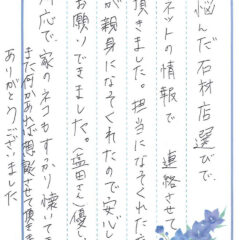 悩んだ石材店選びで、
ネットの情報で 連絡させて
頂きました。担当になそくれた
が親身になそくれたので安心し
お願いできました。(塩田さん)優し
応で、家のネコもすっかり懐いてき
また何かあれば相談させて頂きま
ありがとうございました